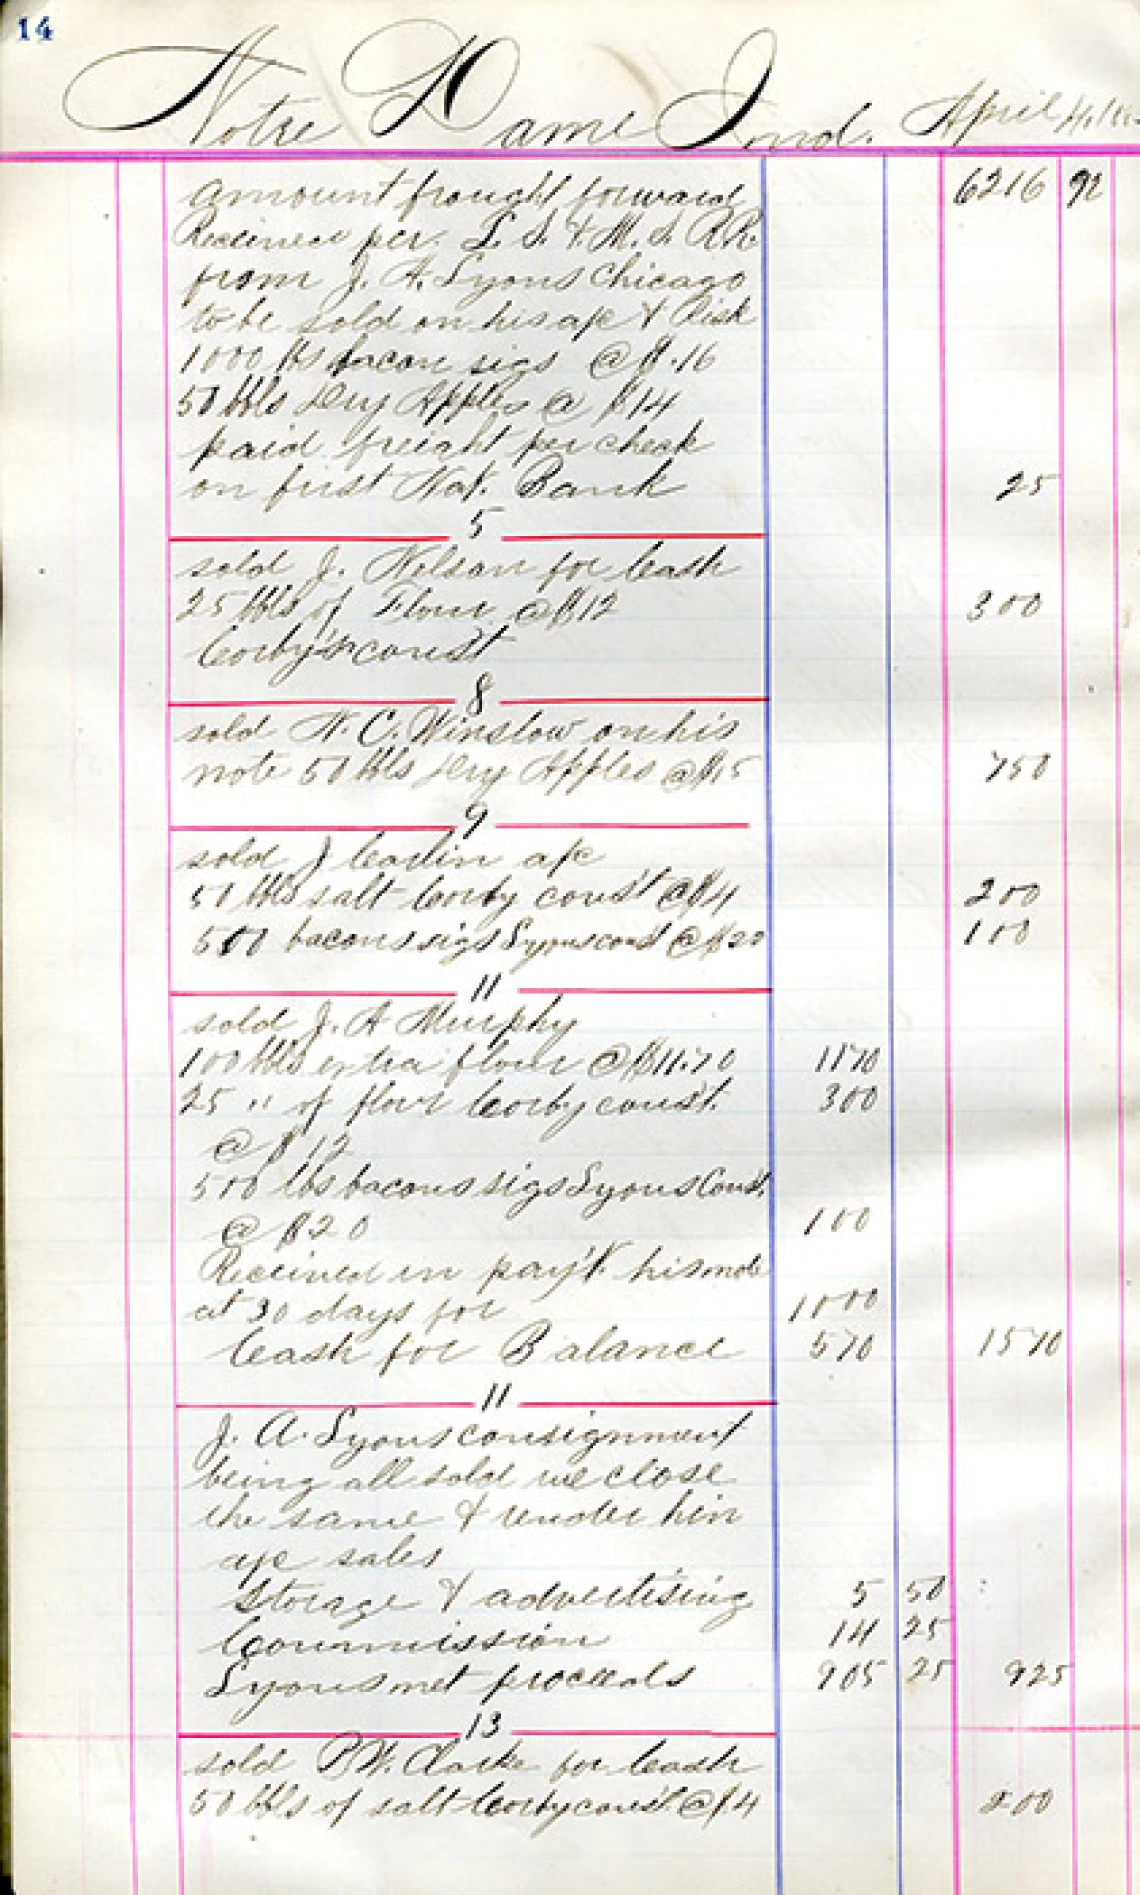 14
Notre Dame Ind. April 4,
amount brought forward 6216 92
Received per L. S. & M. S. R.R.
from J. A. Lyons Chicago
to be sold on his a/c & Risk
1000 lbs bacon sigs @ $.16
50 bbls Dry Apples @ $14
paid freight per check
on first Nat. Bank 25
5
sold J. Nelson for Cash
25 bbls of Flour @ $12 300
Corby's const
8
sold N. C. Winslow on his
note 50 bbls Dry Apples @ $15 750
9
sold J a/c
50 bbls salt Corby const @ $4 200
500 bacons sigs Lyons const @ $20 100
11
sold J. A Murphy
100 bbls extra flour @ $11.70 1170
25 " of flour Corby const. 300
@ $12
500 lbs bacons sigs Lyons Const.
@ $20 100
Received in pay't his note
at 30 days for 1000
Cash for Balance 570 1570
11
J. A. Lyons consignment
being all sold we close
the same & render him
a/c sales
Storage & advertising 5 50
Commission 14 25
Lyons net proceeds 905 25 925
13
sold P.W. Clarke for Cash
50 bbls of salt Corby const @ $4 200